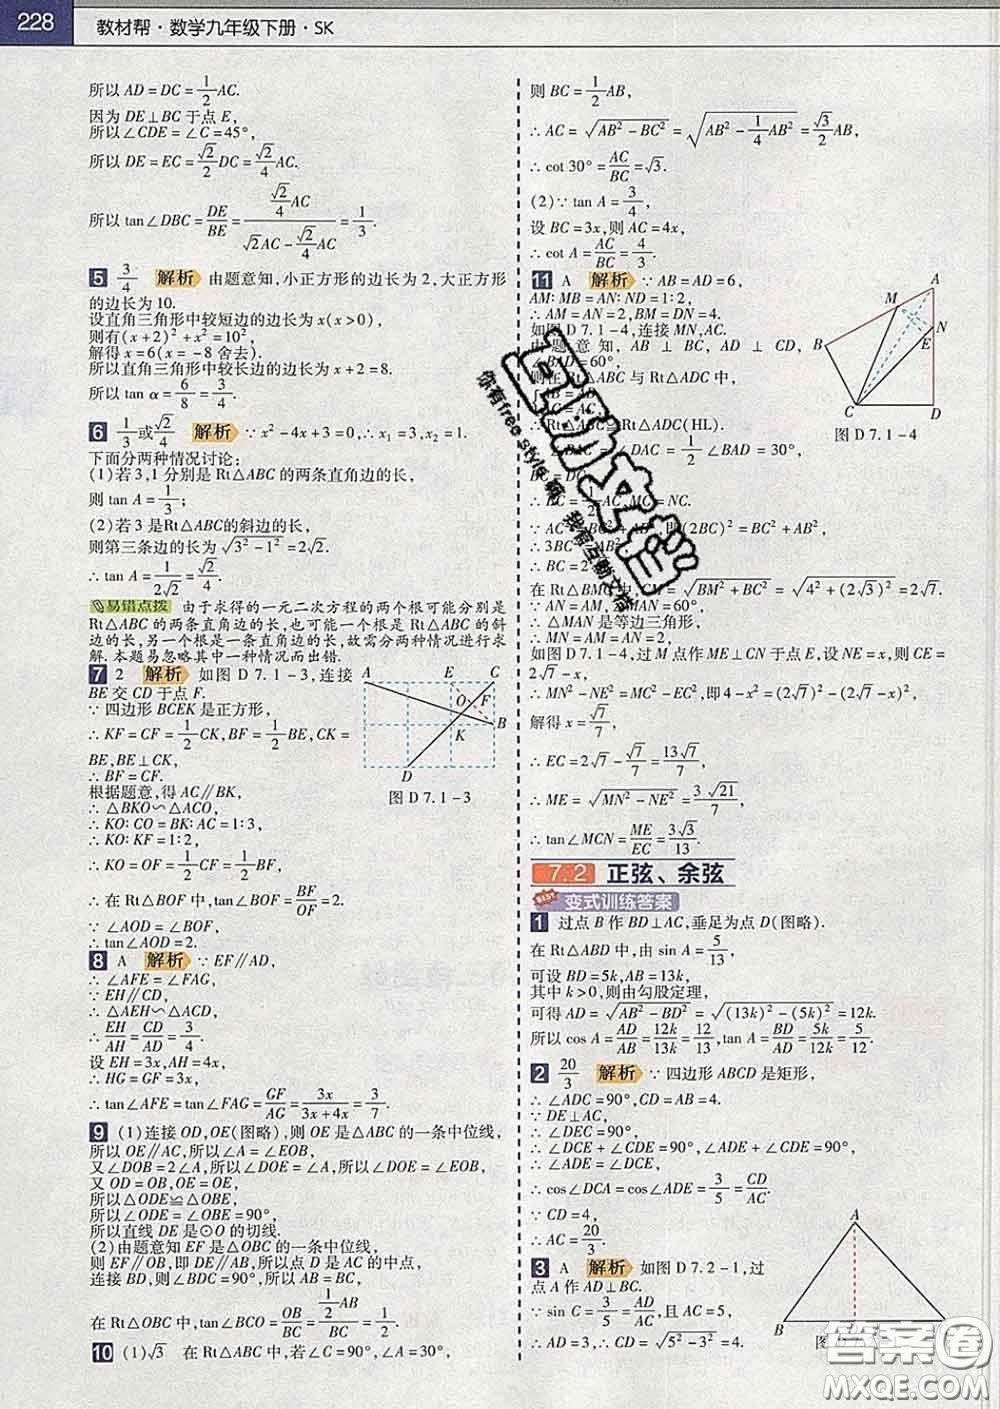 228 教材帮·数学九年级下册·SK
所以 AD=DC=1/2AC.
因为 DE⊥BC 于点 E,
所以∠CDE=∠C=45°,
所以 DE=EC=√2/2DC=√2/4AC.
所以 tan∠DBC=DE/BE=(√2/4AC)/(√2AC-√2/4AC)=1/3.
5 3/4 解析 由题意知,小正方形的边长为2,大正方形
的边长为10.
设直角三角形中较短边的边长为 x(x>0),
则有(x+2)²+x²=10²,
解得 x=6(x=-8舍去).
所以直角三角形中较长边的边长为 x+2=8.
所以 tan α=6/8=3/4.
6 1/3或√2/4 解析 ∵x²-4x+3=0,∴x₁=3,x₂=1.
下面分两种情况讨论:
(1)若3,1分别是 Rt△ABC 的两条直角边的长,
则 tan A=1/3;
(2)若3是Rt△ABC的斜边的长,
则第三条边的长为√(3²-1²)=2√2.
∴tan A=1/(2√2)=√2/4.
易错点拨 由于求得的一元二次方程的两个根可能分别是
Rt△ABC 的两条直角边的长,也可能一个根是 Rt△ABC 的斜
边的长,另一个根是一条直角边的长,故需分两种情况进行求
解.本题易忽略其中一种情况而出错.
7 2 解析 如图 D 7.1-3,连接
BE 交 CD 于点 F.
∵四边形 BCEK 是正方形,
∴KF=CF=1/2CK,BF=1/2BE,CK=
BE,BE⊥CK,
∴BF=CF.
根据题意,得 AC∥BK,
∴△BKO∽△ACO,
∴KO:CO=BK:AC=1:3,
∴KO:KF=1:2,
∴KO=OF=1/2CF=1/2BF,
∴在 Rt△BOF 中,tan∠BOF=BF/OF=2.
∵∠AOD=∠BOF,
∴tan∠AOD=2.
A E C
O F
B
K
D
图 D 7.1-3
8 A 解析 ∵EF∥AD,
∴∠AFE=∠FAG,
∵EH∥CD,
∴△AEH∽△ACD,
∴EH/AH=CD/AD=3/4.
设 EH=3x,AH=4x,
∴HG=GF=3x,
∴tan∠AFE=tan∠FAG=GF/AG=3x/(3x+4x)=3/7.
9 (1)连接 OD,OE(图略),则 OE 是△ABC 的一条中位线,
所以 OE∥AC,所以∠A=∠EOB,
又∠DOB=2∠A,所以∠DOE=∠A,所以∠DOE=∠EOB,
又 OD=OB,OE=OE,
所以△ODE≌△OBE,
所以∠ODE=∠OBE=90°,
所以直线 DE 是⊙O 的切线.
(2)由题意知 EF 是△OBC 的一条中位线,
则 EF∥OB,即 DE∥AB,所以点 D 是 AC 的中点,
连接 BD,则∠BDC=90°,所以 AB=BC,
在 Rt△OBC 中,tan∠BCO=OB/BC=(1/2AB)/BC=1/2.
10 (1)√3 在 Rt△ABC 中,若∠C=90°,∠A=30°,
则 BC=1/2AB,
∴AC=√(AB²-BC²)=√(AB²-1/4AB²)=√3/2AB,
∴cot 30°=AC/BC=√3.
(2)∵tan A=3/4,
设 BC=3x,则 AC=4x,
∴cot A=AC/BC=4/3.
11 A 解析 ∵AB=AD=6,
AM:MB=AN:ND=1:2,
∴AM=AN=2,BM=DN=4.
如图 D 7.1-4,连接 MN,AC.
由题意知,AB⊥BC,AD⊥CD,
BAD=60°,
则在 Rt△ABC 与 Rt△ADC 中,
Rt△ADC(HL).
∠DAC=1/2∠BAD=30°,
MC=NC.
∵AC²即(2BC)²=BC²+AB²,
∴3BC²
∴BC=2
在 Rt△BMC 中,CM=√(BM²+BC²)=√(4²+(2√3)²)=2√7.
∵AN=AM,∠MAN=60°,
∴△MAN 是等边三角形,
∴MN=AM=AN=2.
如图 D 7.1-4,过 M 点作 ME⊥CN 于点 E,设 NE=x,则 CE=
2√7-x,
∴MN²-NE²=MC²-EC²,即4-x²=(2√7)²-(2√7-x)²,
解得 x=√7/7,
∴EC=2√7-√7/7=13√7/7,
∴ME=√(MN²-NE²)=3√21/7,
∴tan∠MCN=ME/EC=3√3/13.
A
M
N
B E
C D
图 D 7.1-4
7.2 正弦、余弦
BEST 变式训练答案
1 过点 B 作 BD⊥AC,垂足为点 D(图略).
在 Rt△ABD 中,由 sin A=5/13,
可设 BD=5k,AB=13k,
其中 k>0,则由勾股定理,
可得 AD=√(AB²-BD²)=√((13k)²-(5k)²)=12k.
所以 cos A=AD/AB=12k/13k=12/13,tan A=BD/AD=5k/12k=5/12.
2 20/3 解析 ∵四边形 ABCD 是矩形,
∴∠ADC=90°,CD=AB=4.
∵DE⊥AC,
∴∠DEC=90°.
∴∠DCE+∠CDE=90°,∠ADE+∠CDE=90°,
∴∠ADE=∠DCE,
∴cos∠DCA=cos∠ADE=3/5=CD/AC.
∵CD=4,
∴AC=20/3.
3 A 解析 如图 D 7.2-1,过
点 A 作 AD⊥BC.
∵sin C=3/5=AD/AC,且 AC=5,
∴AD=3,∴CD=√(5²-3²)=4.
A
B
互助文档
你有free style嘛,我有互助文档
答案圈
MXQE.COM